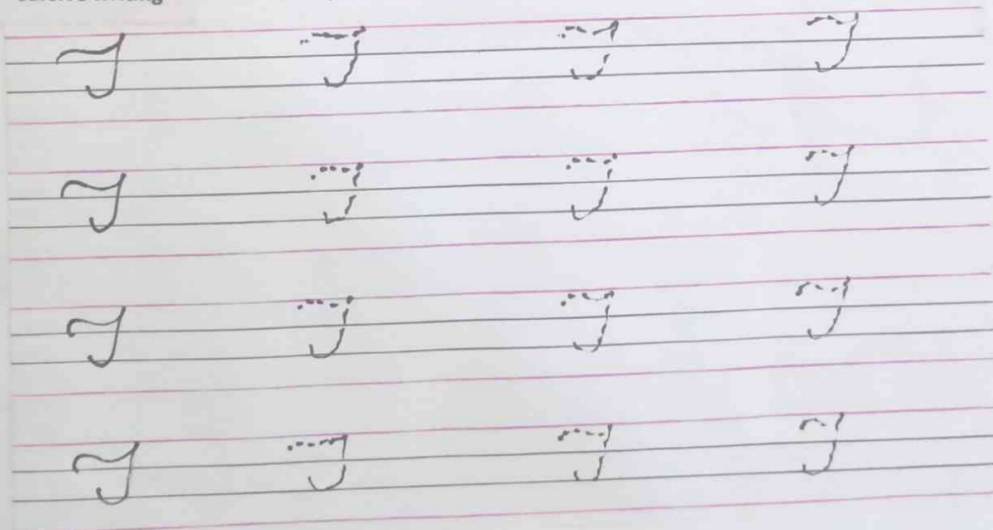 J J J J
J J J J
J J J J
J J J J